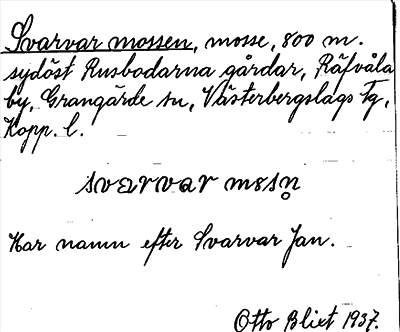 Svarvar mossen, mosse, 800 m.
sydöst Rusbodarna gårdar, Räfvåla
by, Grangärde sn, Västerbergslags Tg,
Kopp. l.
svarvar mosn̥
Har namn efter Svarvar Jan.
Otto Blixt 1937.